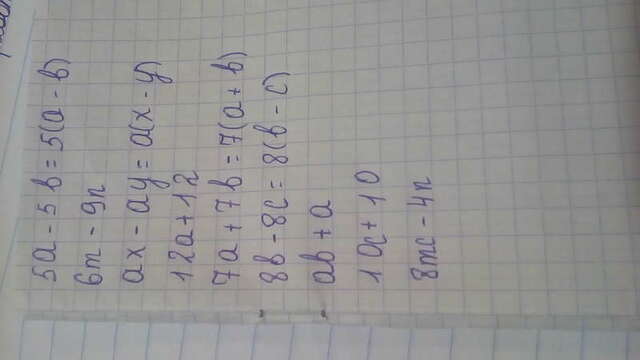 5a - 5b = 5(a - b)
6m - 9n
ax - ay = a(x - y)
12a + 12
7a + 7b = 7(a + b)
8b - 8c = 8(b - c)
ab + a
10c + 10
8mc - 4n